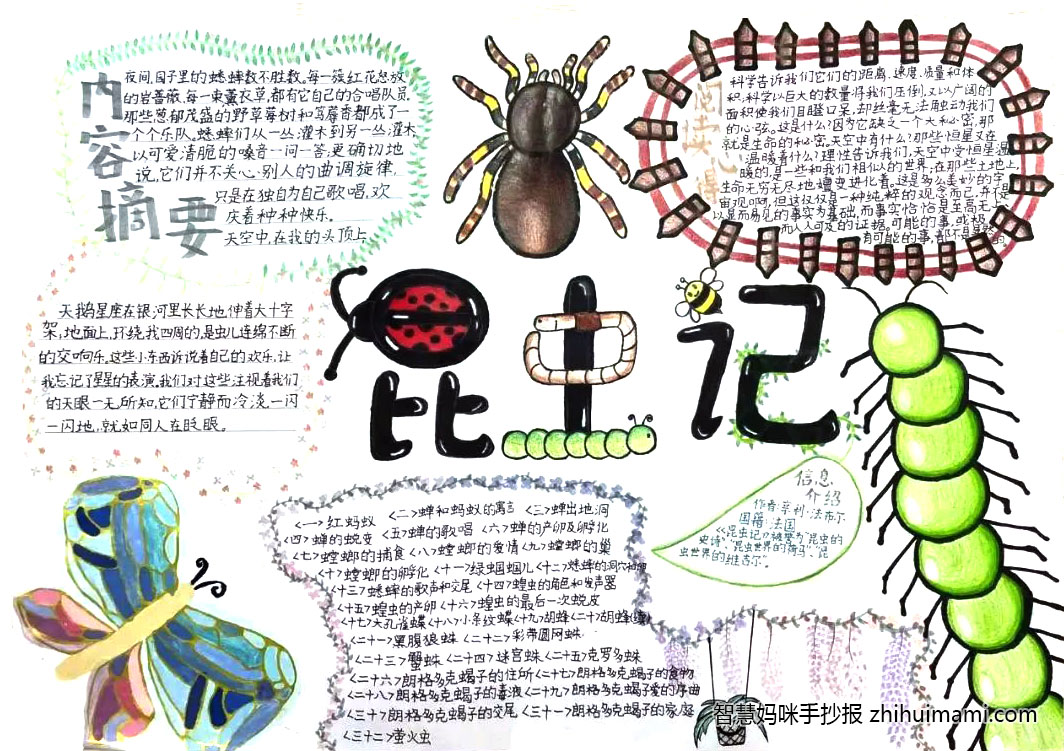 内容摘要
夜间,园子里的蟋蟀数不胜数。每一簇红花怒放
的岩蔷薇,每一束薰衣草,都有它自己的合唱队员,
那些葱郁茂盛的野草莓树和笃耨香都成了一
个个乐队。蟋蟀们从一丛灌木到另一丛灌木
以可爱清脆的嗓音一问一答,更确切地
说,它们并不关心别人的曲调旋律,
只是在独自为自己歌唱,欢
庆着种种快乐。
天空中,在我的头顶上
天鹅星座在银河里长长地伸着大十字
架,地面上,环绕我四周的,是虫儿连绵不断
的交响乐。这些小东西诉说着自己的欢乐,让
我忘记了星星的表演。我们对这些注视着我们
的天眼一无所知,它们宁静而冷淡,一闪
一闪地,就如同人在眨眼。
昆虫记
科学告诉我们它们的距离、速度、质量和体
积,科学以巨大的数量将我们压倒,又以广阔的
面积使我们目瞪口呆,却丝毫无法触动我们
的心弦。这是什么?因为它缺乏一个大和秘密,那
就是生命的秘密。天空中有什么?那些恒星又在
温暖着什么?理性告诉我们,天空中受恒星温
暖的,是一些和我们相似的世界;在那些土地上,
生命无穷无尽地嬗变进化着。这是多么美妙的宇
宙观啊,但这仅仅是一种纯粹的观念而已,并不是
以显而易见的事实为基础,而事实恰恰是至高无上
而人人可及的证据。可能的事,或极
有可能的事,都不是
信息
介绍
作者:亨利·法布尔
国籍:法国
《昆虫记》被誉为“昆虫的
史诗”“昆虫世界的荷马”“昆
虫世界的维吉尔”。
<一>红蚂蚁 <二>蝉和蚂蚁的寓言 <三>蝉出地洞
<四>蝉的蜕变 <五>蝉的歌唱 <六>蝉的产卵及孵化
<七>螳螂的捕食 <八>螳螂的爱情 <九>螳螂的巢
<十>螳螂的孵化 <十一>绿蝈蝈儿 <十二>蟋蟀的洞穴和卵
<十三>蟋蟀的歌声和交尾 <十四>蝗虫的角色和发声器
<十五>蝗虫的产卵 <十六>蝗虫的最后一次蜕皮
<十七>大孔雀蝶 <十八>小条纹蝶 <十九>胡蜂 <二十>胡蜂
<二十一>黑腹狼蛛 <二十二>彩带圆网蛛
<二十三>蟹蛛 <二十四>迷宫蛛 <二十五>克罗多蛛
<二十六>朗格多克蝎子的住所 <二十七>朗格多克蝎子的食物
<二十八>朗格多克蝎子的毒液 <二十九>朗格多克蝎子爱的序曲
<三十>朗格多克蝎子的交尾 <三十一>朗格多克蝎子的家庭
<三十二>萤火虫
智慧妈咪手抄报 zhihuimami.com